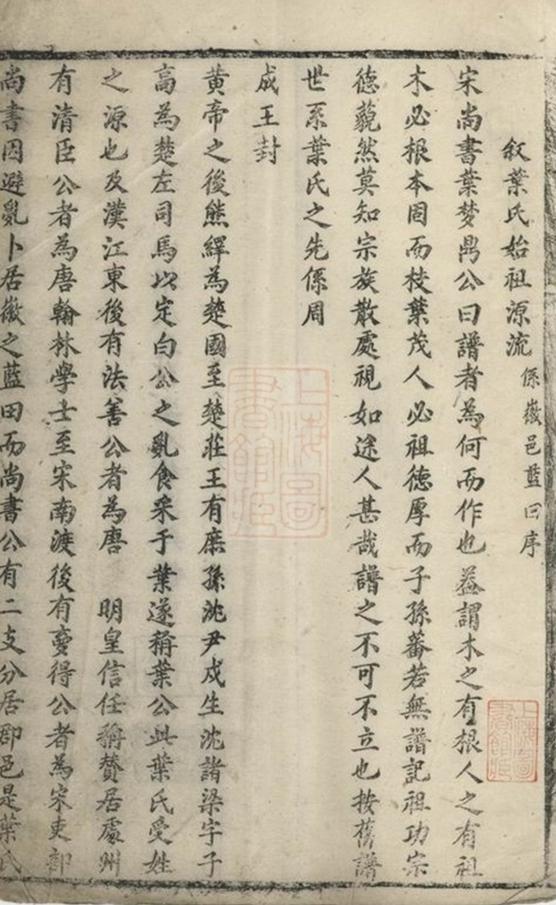 叙葉氏始祖源流 係徽邑藍田序
宋尚書葉梦鼎公曰譜者為何而作也葢謂木之有根人之有祖
木必根本固而枝葉茂人必祖德厚而子孫蕃若無譜記祖功宗
德藐然莫知宗族散處視如途人甚哉譜之不可不立也按舊譜
世系葉氏之先係周
成王封
黄帝之後熊繹為楚國至楚莊王有庶孫沈尹戍生沈諸梁字子
高為楚左司馬以定白公之亂食采于葉遂稱葉公此葉氏受姓
之源也及漢江東後有法善公者為唐 明皇信任稱賛居處州
有清臣公者為唐翰林學士至宋南渡後有夢得公者為宋吏部
尚書因避亂卜居徽之藍田而尚書公有二支分居郡邑是葉氏
上海圖書館藏
上海圖書館藏